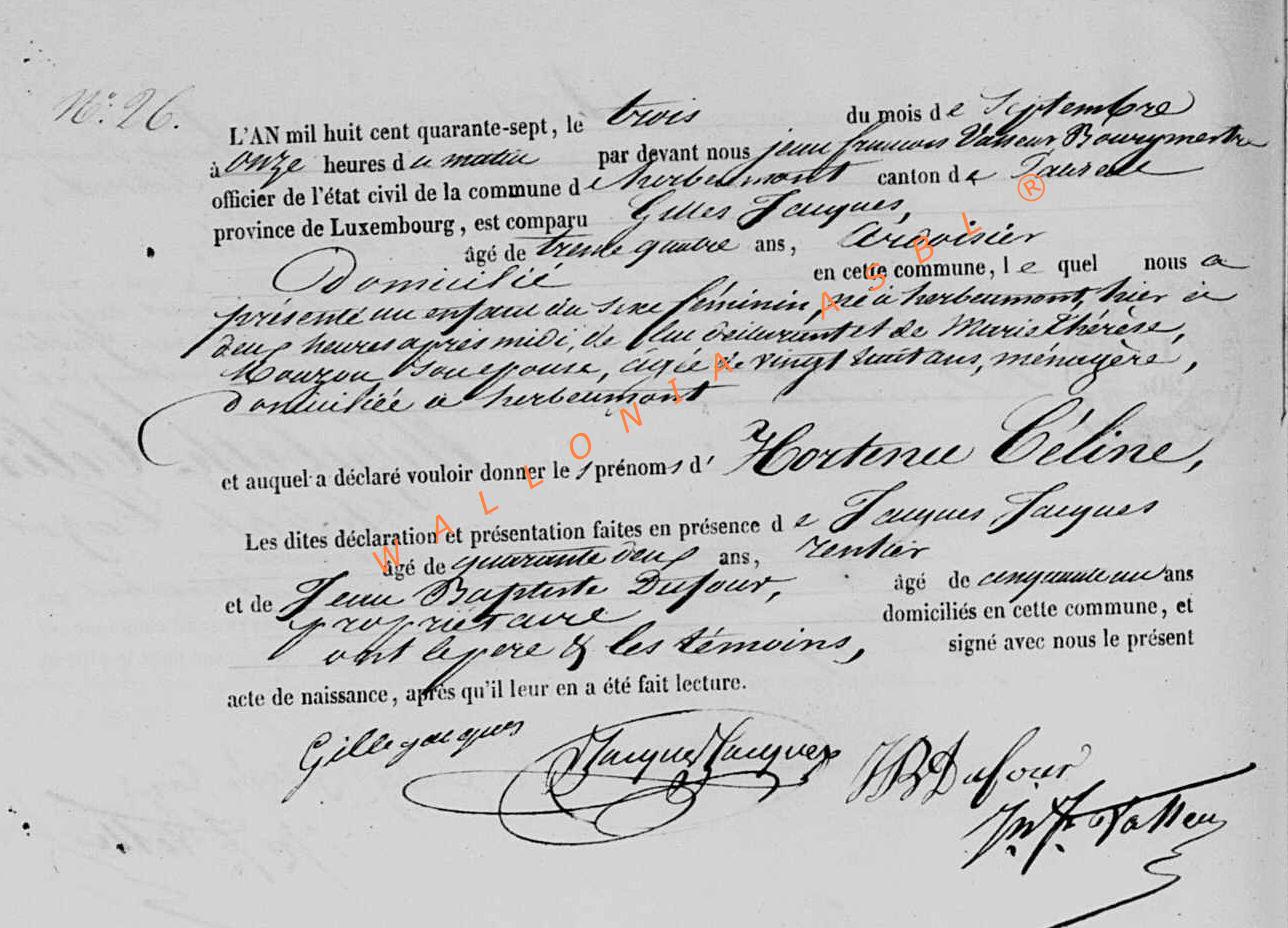 N° 26.
L'AN mil huit cent quarante-sept, le trois du mois de Septembre
à onze heures du matin par devant nous jean françois Vasseur Bourgmestre
officier de l'état civil de la commune de herbeumont canton de
province de Luxembourg, est comparu Gilles Jacques,
âgé de trente quatre ans, ardoisier
Domicilié en cette commune, le quel nous a
présenté un enfant du sexe féminin, né à herbeumont, hier à
deux heures après midi, de lui déclarant et de Marie Thérèse,
Mouzon son épouse, âgée de vingt huit ans, ménagère,
domiciliée à herbeumont
et auquel a déclaré vouloir donner les prénoms d' Hortence Céline,
Les dites déclaration et présentation faites en présence de Jacques Jacques
âgé de quarante deux ans, rentier
et de Jean Baptiste Dufour, âgé de cinquante un ans
propriétaire domiciliés en cette commune, et
ont le père & les témoins, signé avec nous le présent
acte de naissance, après qu'il leur en a été fait lecture.
Gille jacques Jacques Jacques JB Dufour
Jn. Fr. Vasseur
WALLONIA ASBL ®